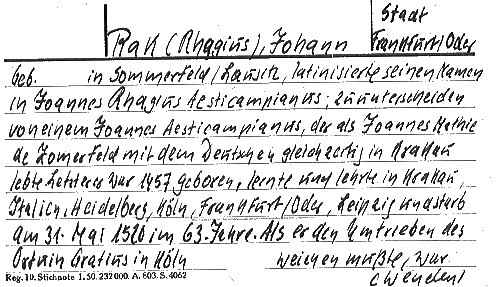 Stadt
Rak (Rhagius), Johann Frankfurt/Oder
geb. in Sommerfeld/Lausitz, latinisierte seinen Namen
in Joannes Rhagius Aesticampianus; zu unterscheiden
von einem Joannes Aesticampianus, der als Joannes Mathie
de Zomerfeld mit dem Deutschen gleichzeitig in Krakau
lebte. Letzterer war 1457 geboren, lernte und lehrte in Krakau,
Italien, Heidelberg, Köln, Frankfurt/Oder, Leipzig und starb
am 31. Mai 1520 im 63. Jahre. Als er den Umtrieben des
Ortuin Gratius in Köln weichen mußte, war
Reg. 10. Stichnote 1. 50. 232 000. A. 603. S. 4062